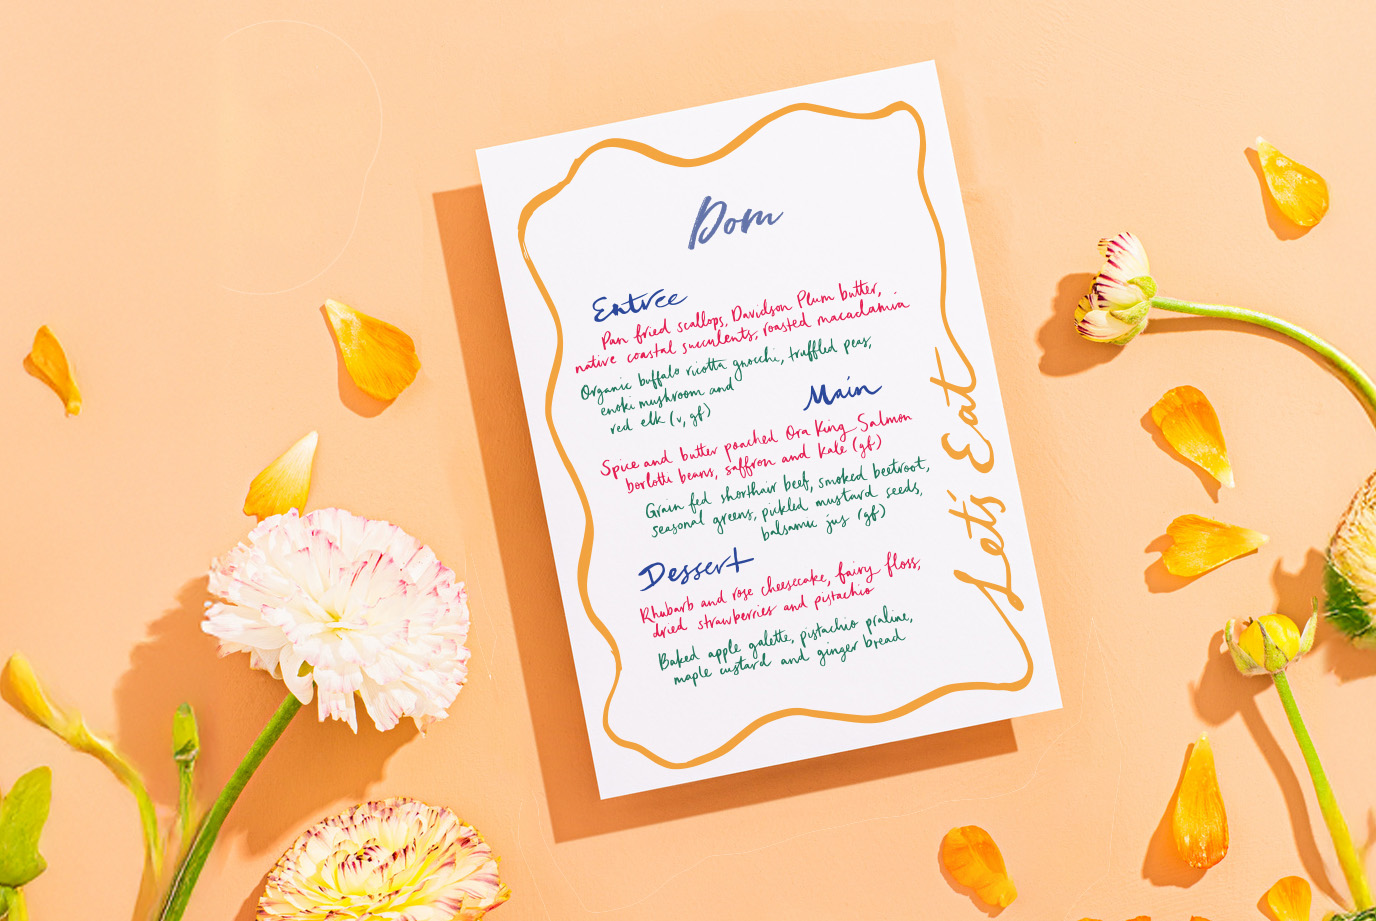 Dom
Entree
Pan fried scallops, Davidson Plum butter,
native coastal succulents, roasted macadamia
Organic buffalo ricotta gnocchi, truffled peas,
enoki mushroom and
red elk (v, gf)
Main
Spice and butter poached Ora King Salmon
borlotti beans, saffron and kale (gf)
Grain fed shorthair beef, smoked beetroot,
seasonal greens, pickled mustard seeds,
balsamic jus (gf)
Dessert
Rhubarb and rose cheesecake, fairy floss,
dried strawberries and pistachio
Baked apple galette, pistachio praline,
maple custard and ginger bread
Let's Eat